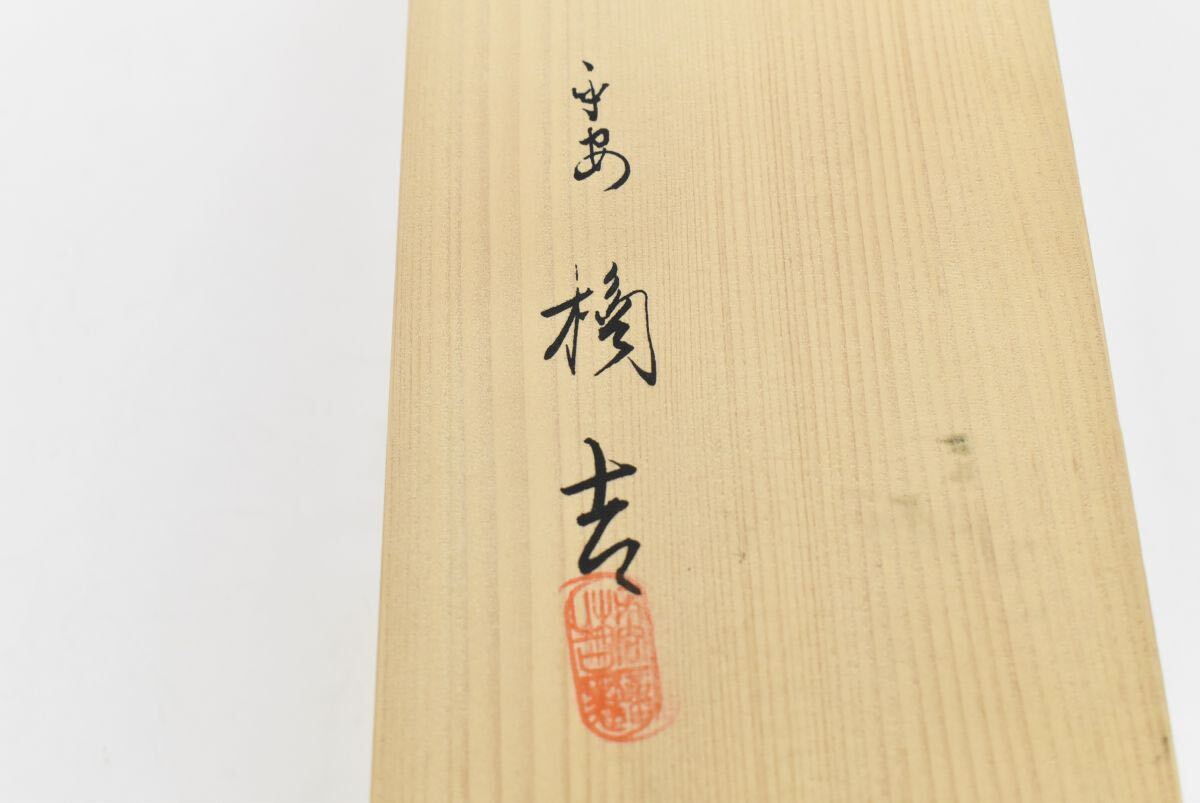 平安 橘吉